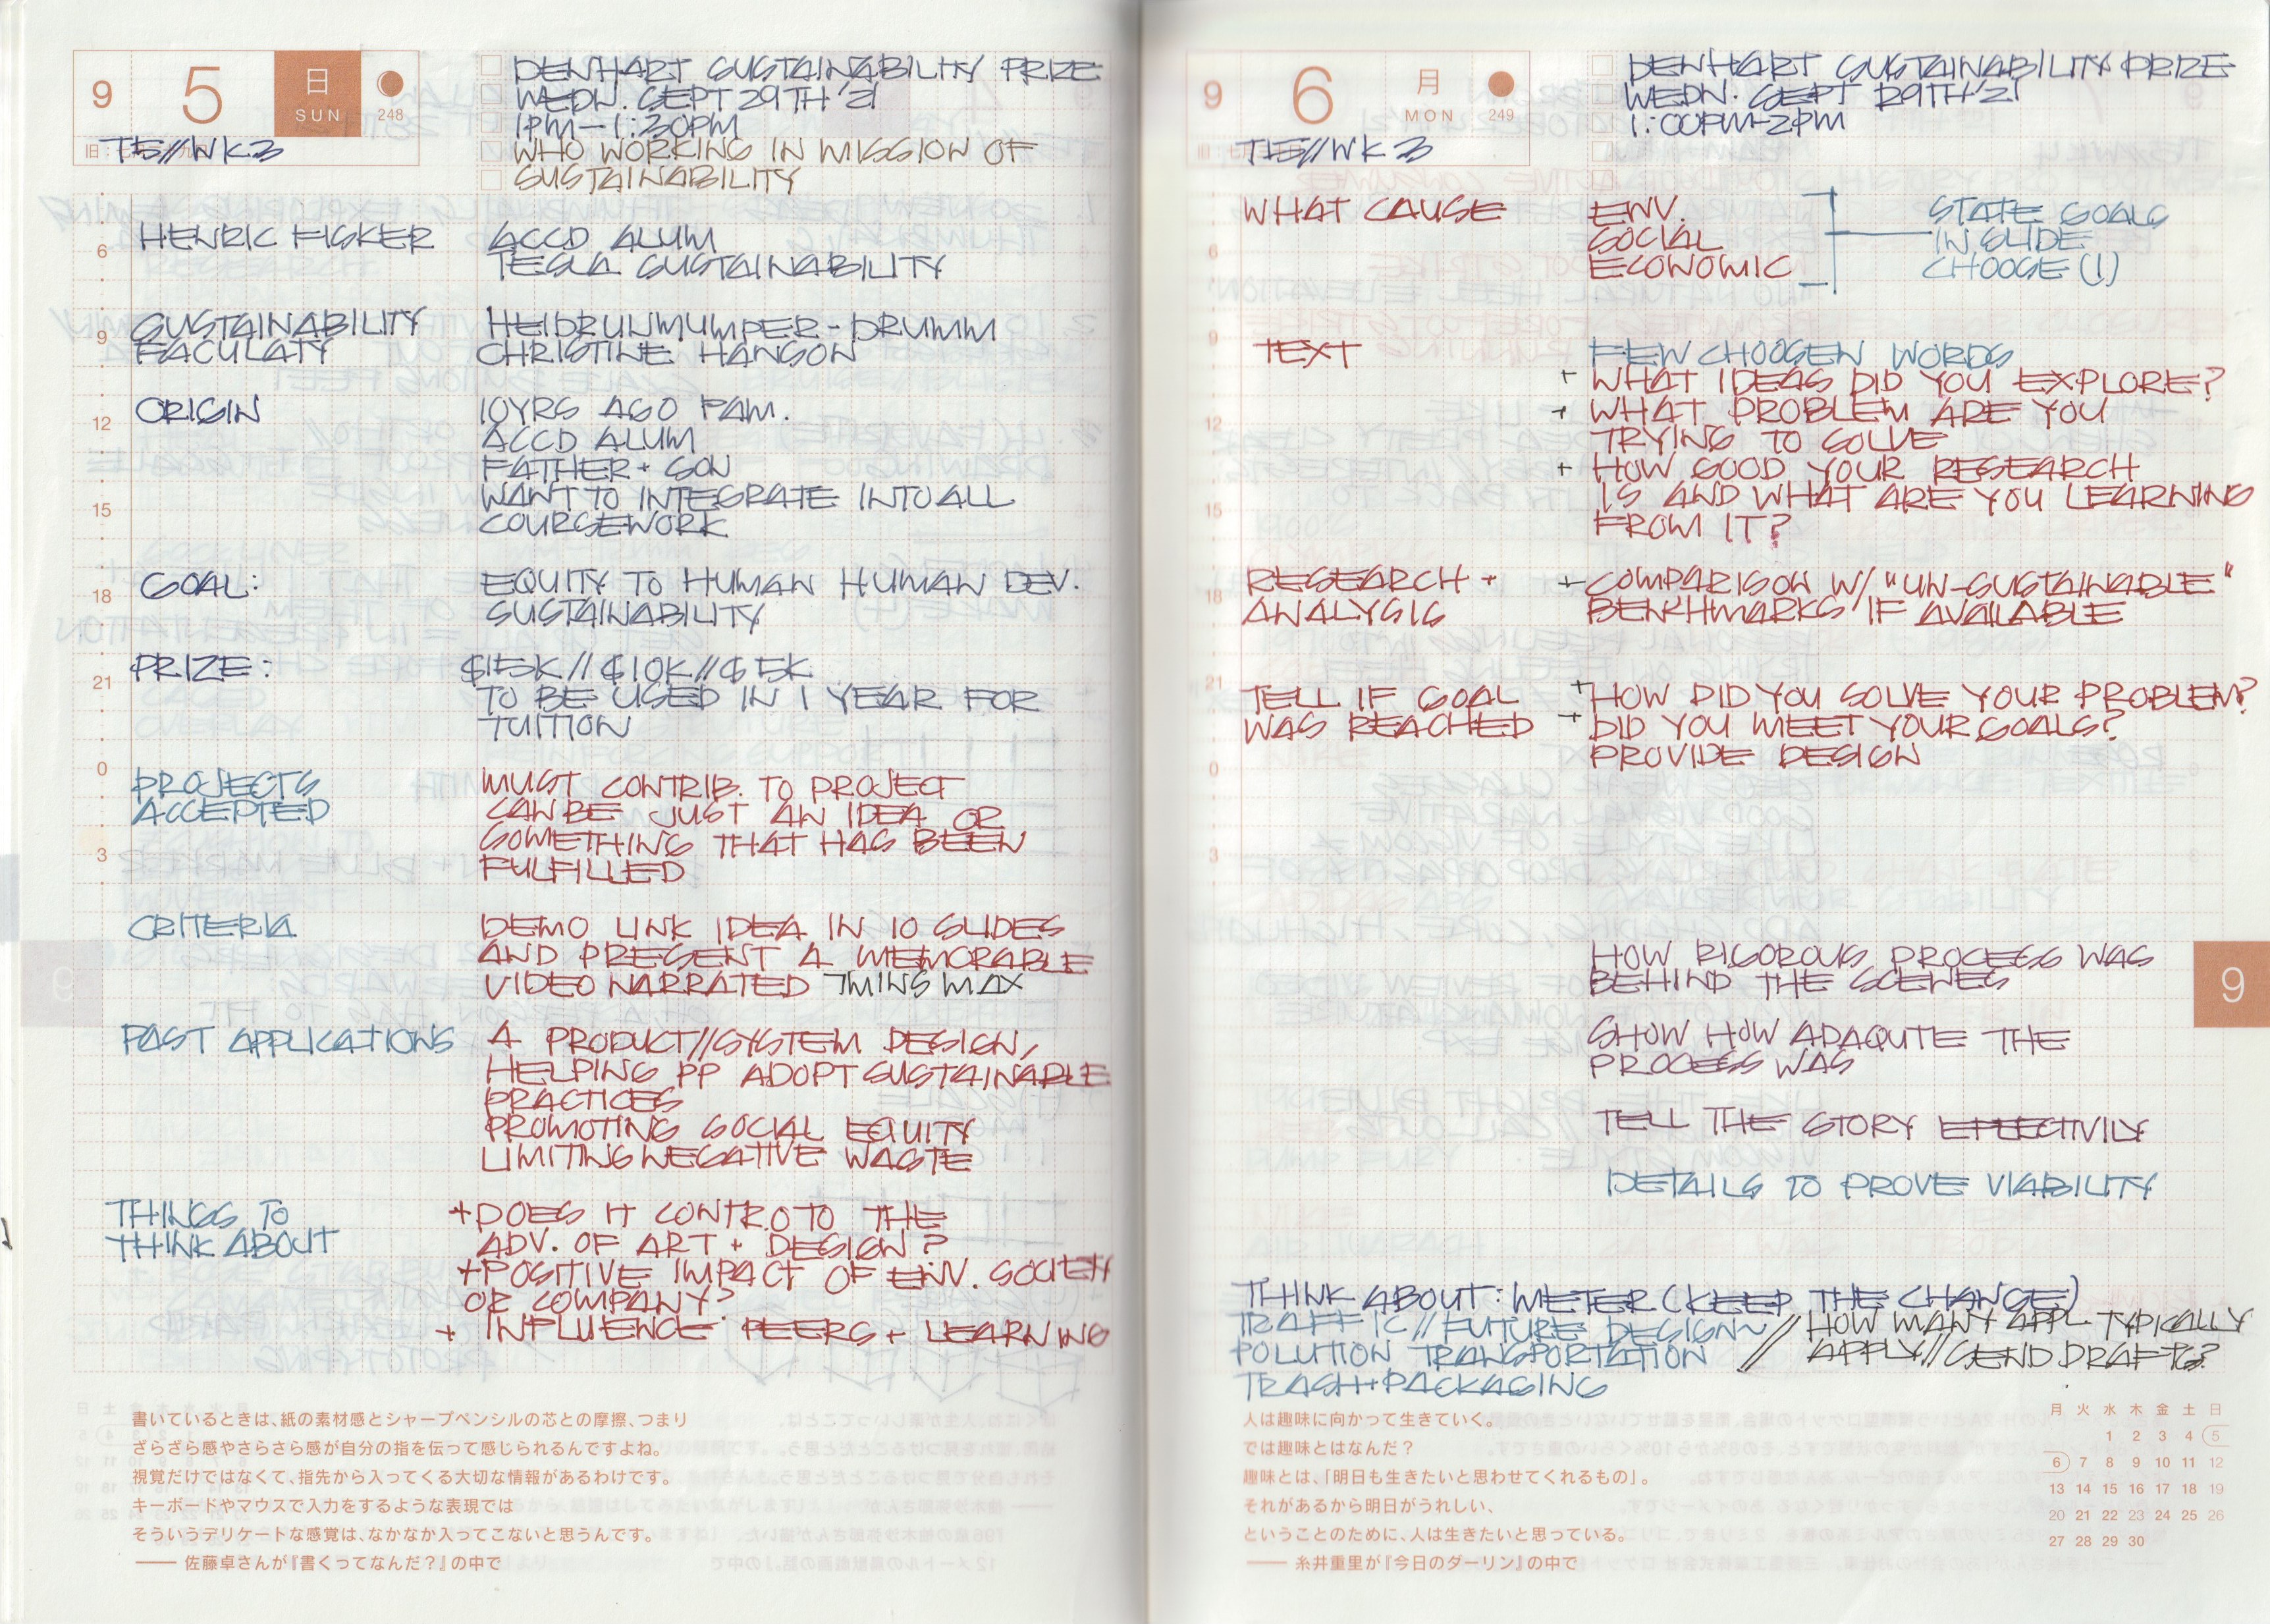 9 5 日 SUN 248
旧：七
T5//WK3
DENHART SUSTAINABILITY PRIZE
WEDN. SEPT 29TH '21
1PM-1:30PM
WHO WORKING IN MISSION OF
SUSTAINABILITY
HENRIC FISKER ACCD ALUM
TESLA SUSTAINABILITY
SUSTAINABILITY HEIDRUNMUMPER-DRUMM
FACULATY CHRISTINE HANSON
ORIGIN 10YRS AGO FAM.
ACCD ALUM
FATHER + SON
WANT TO INTEGRATE INTO ALL
COURSEWORK
GOAL: EQUITY TO HUMAN HUMAN DEV.
SUSTAINABILITY
PRIZE: $15K//$10K//$5K
TO BE USED IN 1 YEAR FOR
TUITION
PROJECTS MUST CONTRIB. TO PROJECT
ACCEPTED CAN BE JUST AN IDEA OR
SOMETHING THAT HAS BEEN
FULFILLED
CRITERIA DEMO LINK IDEA IN 10 SLIDES
AND PRESENT A MEMORABLE
VIDEO NARRATED 7MINS MAX
PAST APPLICATIONS A PRODUCT//SYSTEM DESIGN,
HELPING PP ADOPT SUSTAINABLE
PRACTICES
PROMOTING SOCIAL EQUITY
LIMITING NEGATIVE WASTE
THINGS TO + DOES IT CONTR.O TO THE
THINK ABOUT ADV. OF ART + DESIGN?
+ POSITIVE IMPACT OF ENV. SOCIETY
OR COMPANY?
+ INFLUENCE PEERS + LEARNING
6
9
12
15
18
21
0
3
書いているときは、紙の素材感とシャープペンシルの芯との摩擦、つまり
ざらざら感やさらさら感が自分の指を伝って感じられるんですよね。
視覚だけではなくて、指先から入ってくる大切な情報があるわけです。
キーボードやマウスで入力をするような表現では
そういうデリケートな感覚は、なかなか入ってこないと思うんです。
── 佐藤卓さんが『書くってなんだ？』の中で
9 6 月 MON 249
旧：七
T5//WK3
DENHART SUSTAINABILITY PRIZE
WEDN. SEPT 29TH '21
1:00PM-2PM
WHAT CAUSE ENV. STATE GOALS
SOCIAL IN SLIDE
ECONOMIC CHOOSE (1)
TEXT FEW CHOOSEN WORDS
+ WHAT IDEAS DID YOU EXPLORE?
+ WHAT PROBLEM ARE YOU
TRYING TO SOLVE
+ HOW GOOD YOUR RESEARCH
IS AND WHAT ARE YOU LEARNING
FROM IT?
RESEARCH + + COMPARISON W/ "UN-SUSTAINABLE"
ANALYSIS BENKHMARKS IF AVAILABLE
TELL IF GOAL + HOW DID YOU SOLVE YOUR PROBLEM?
WAS REACHED + DID YOU MEET YOUR GOALS?
PROVIDE DESIGN
HOW RIGOROUS PROCESS WAS
BEHIND THE SCENES
SHOW HOW ADAQUTE THE
PROCESS WAS
TELL THE STORY EFFECTIVILY
DETAILS TO PROVE VIABILITY
THINK ABOUT: METER (KEEP THE CHANGE)
TRAFFIC//FUTURE DESIGN~ // HOW MANY APPL TYPICALLY
POLUTION TRANSPORTATION APPLY//SEND DRAFTS?
TRASH+PACKAGING
6
9
12
15
18
21
0
3
9
人は趣味に向かって生きていく。
では趣味とはなんだ？
趣味とは、「明日も生きたいと思わせてくれるもの」。
それがあるから明日がうれしい、
ということのために、人は生きたいと思っている。
── 糸井重里が『今日のダーリン』の中で
月 火 水 木 金 土 日
1 2 3 4 5
6 7 8 9 10 11 12
13 14 15 16 17 18 19
20 21 22 23 24 25 26
27 28 29 30